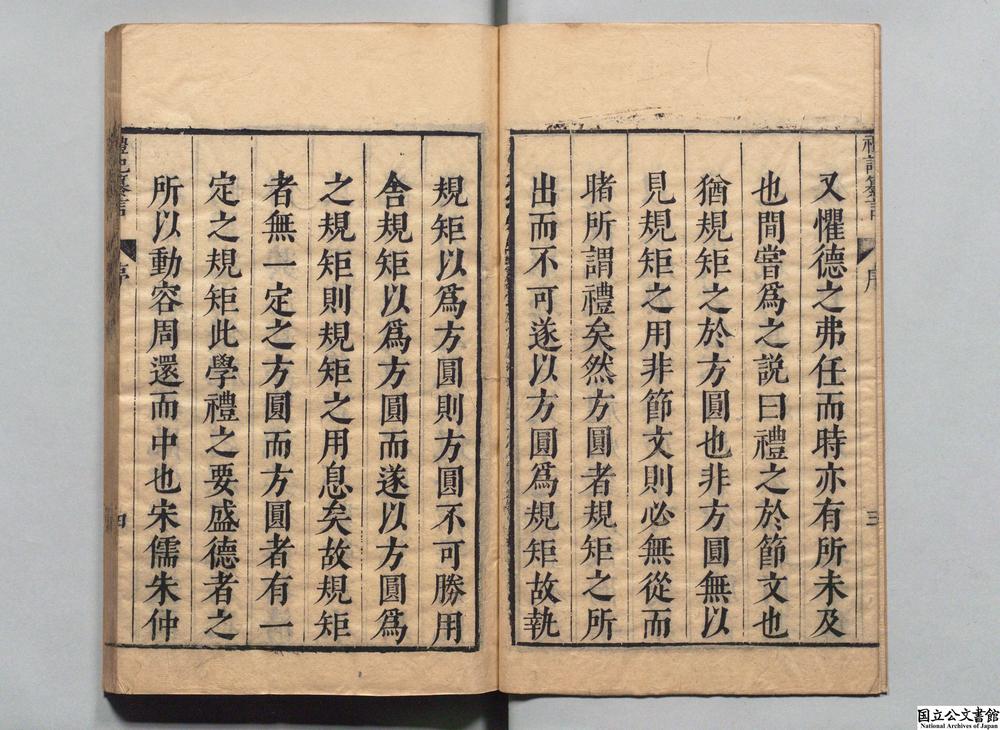 又懼德之弗任而時亦有所未及
也間嘗爲之説曰禮之於節文也
猶規矩之於方圓也非方圓無以
見規矩之用非節文則必無從而
睹所謂禮矣然方圓者規矩之所
出而不可遂以方圓爲規矩故執
規矩以爲方圓則方圓不可勝用
舍規矩以爲方圓而遂以方圓爲
之規矩則規矩之用息矣故規矩
者無一定之方圓而方圓者有一
定之規矩此學禮之要盛德者之
所以動容周還而中也宋儒朱仲
禮記纂言
序
四
国立公文書館
National Archives of Japan